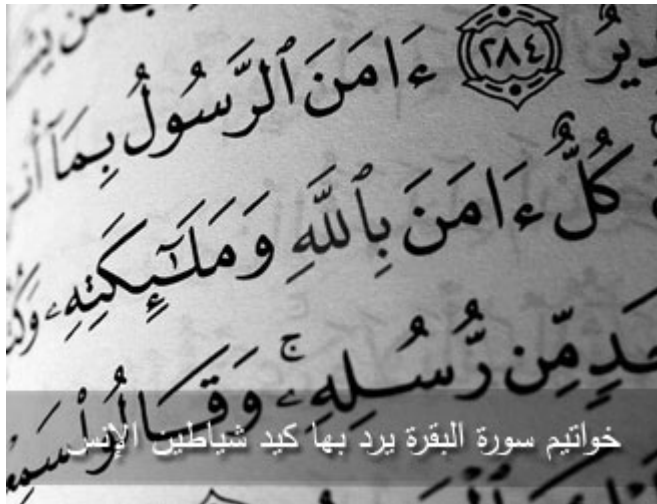 دِيرٌ ٢٨٤ ءَامَنَ ٱلرَّسُولُ بِمَآ
كُلٌّ ءَامَنَ بِٱللَّهِ وَمَلَـٰٓئِكَتِهِۦ
مِّن رُّسُلِهِۦ ۚ وَقَالُوا۟
خواتيم سورة البقرة يرد بها كيد شياطين الإنس